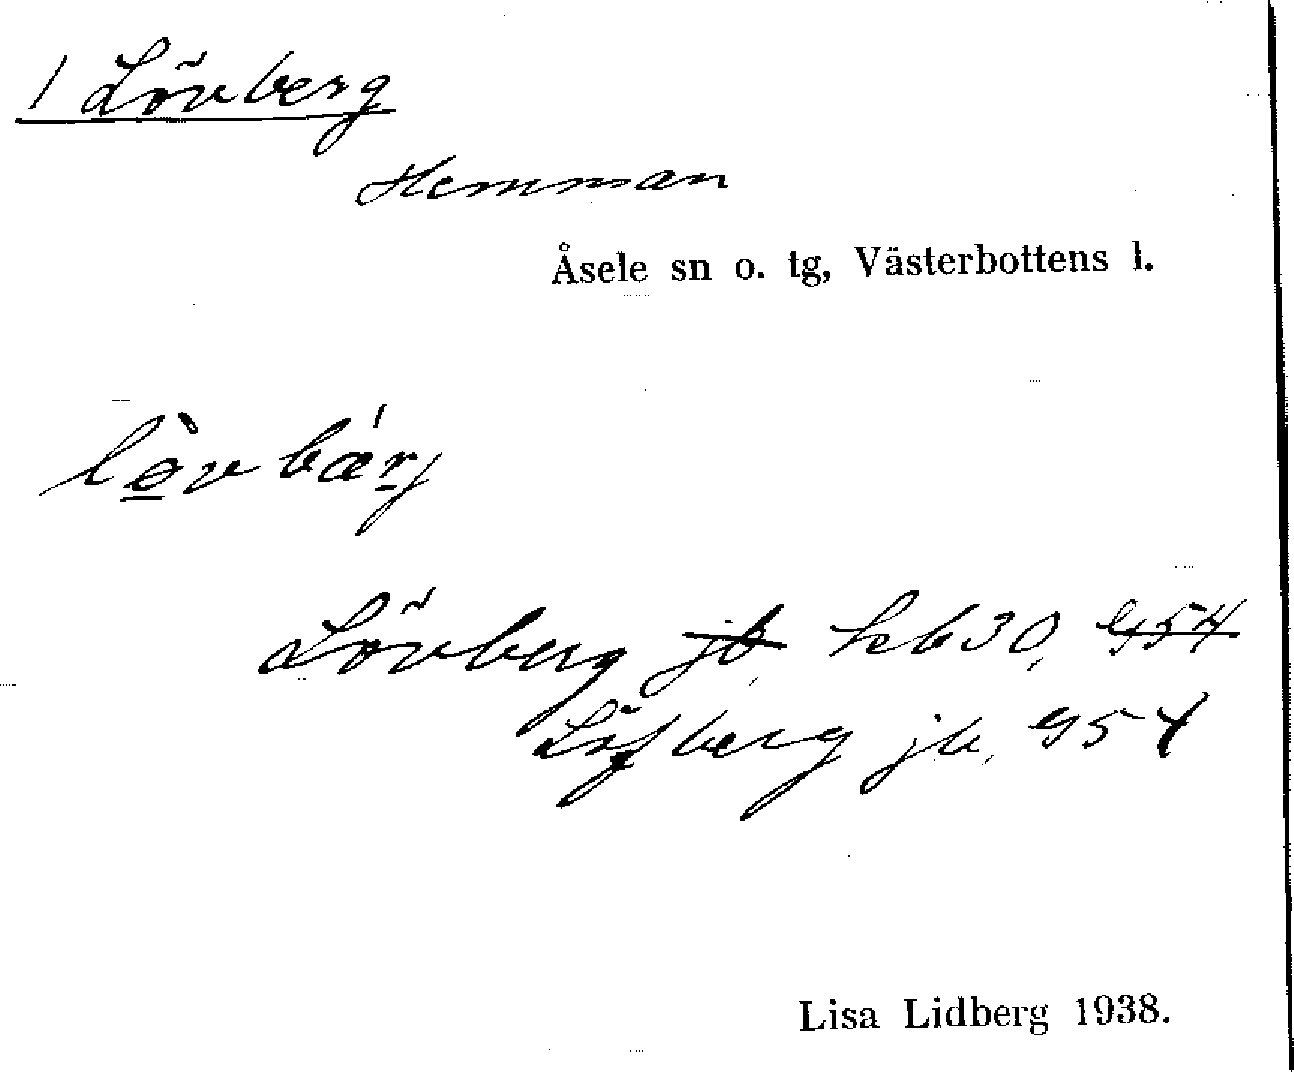 1 Lövberg
Hemman
Åsele sn o. tg, Västerbottens l.
lə̀vbæ´rj
Lövberg jb. hb 30, G54
Löfberg jb. G54
Lisa Lidberg 1938.